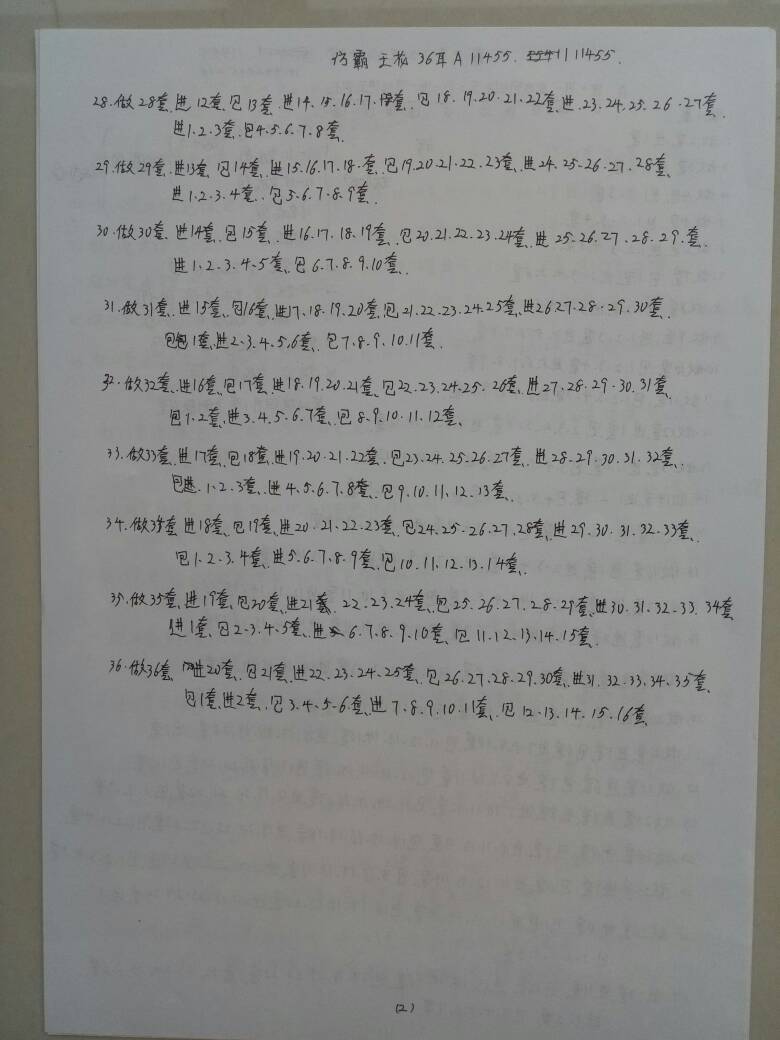 主板 36耳 A 11455. 11455.
28.做28套、进12套、包13套、进14、15、16、17、套、包18、19、20、21、22套、进、23、24、25、26、27套、
进1、2、3套、包4、5、6、7、8套、
29.做29套、进13套、包14套、进15、16、17、18、套、包19、20、21、22、23套、进24、25、26、27、28套、
进1、2、3、4套、包5、6、7、8、9套、
30.做30套、进14套、包15套、进16、17、18、19套、包20、21、22、23、24套、进25、26、27、28、29、套、
进1、2、3、4、5套、包6、7、8、9、10套、
31.做31套、进15套、包16套、进17、18、19、20套、包21、22、23、24、25套、进26、27、28、29、30套、
包1套、进2、3、4、5、6套、包7、8、9、10、11套、
32.做32套、进16套、包17套、进18、19、20、21套、包22、23、24、25、26套、进27、28、29、30、31套、
包1、2套、进3、4、5、6、7套、包8、9、10、11、12套、
33.做33套、进17套、包18套、进19、20、21、22套、包23、24、25、26、27套、进28、29、30、31、32套、
包1、2、3套、进4、5、6、7、8套、包9、10、11、12、13套、
34.做34套、进18套、包19套、进20、21、22、23套、包24、25、26、27、28套、进29、30、31、32、33套、
包1、2、3、4套、进5、6、7、8、9套、包10、11、12、13、14套、
35.做35套、进19套、包20套、进21、22、23、24套、包25、26、27、28、29套、进30、31、32、33、34套
进1套、包2、3、4、5套、进6、7、8、9、10套、包11、12、13、14、15套、
36.做36套、进20套、包21套、进22、23、24、25套、包26、27、28、29、30套、进31、32、33、34、35套、
包1套、进2套、包3、4、5、6套、进7、8、9、10、11套、包12、13、14、15、16套、
(2)